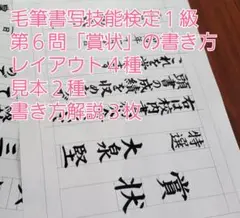 毛筆書写技能検定1級
第6問「賞状」の書き方
レイアウト4種
見本2種
書き方解説3枚
賞状
特選
大泉堅
右は校内
頭の成績を収め